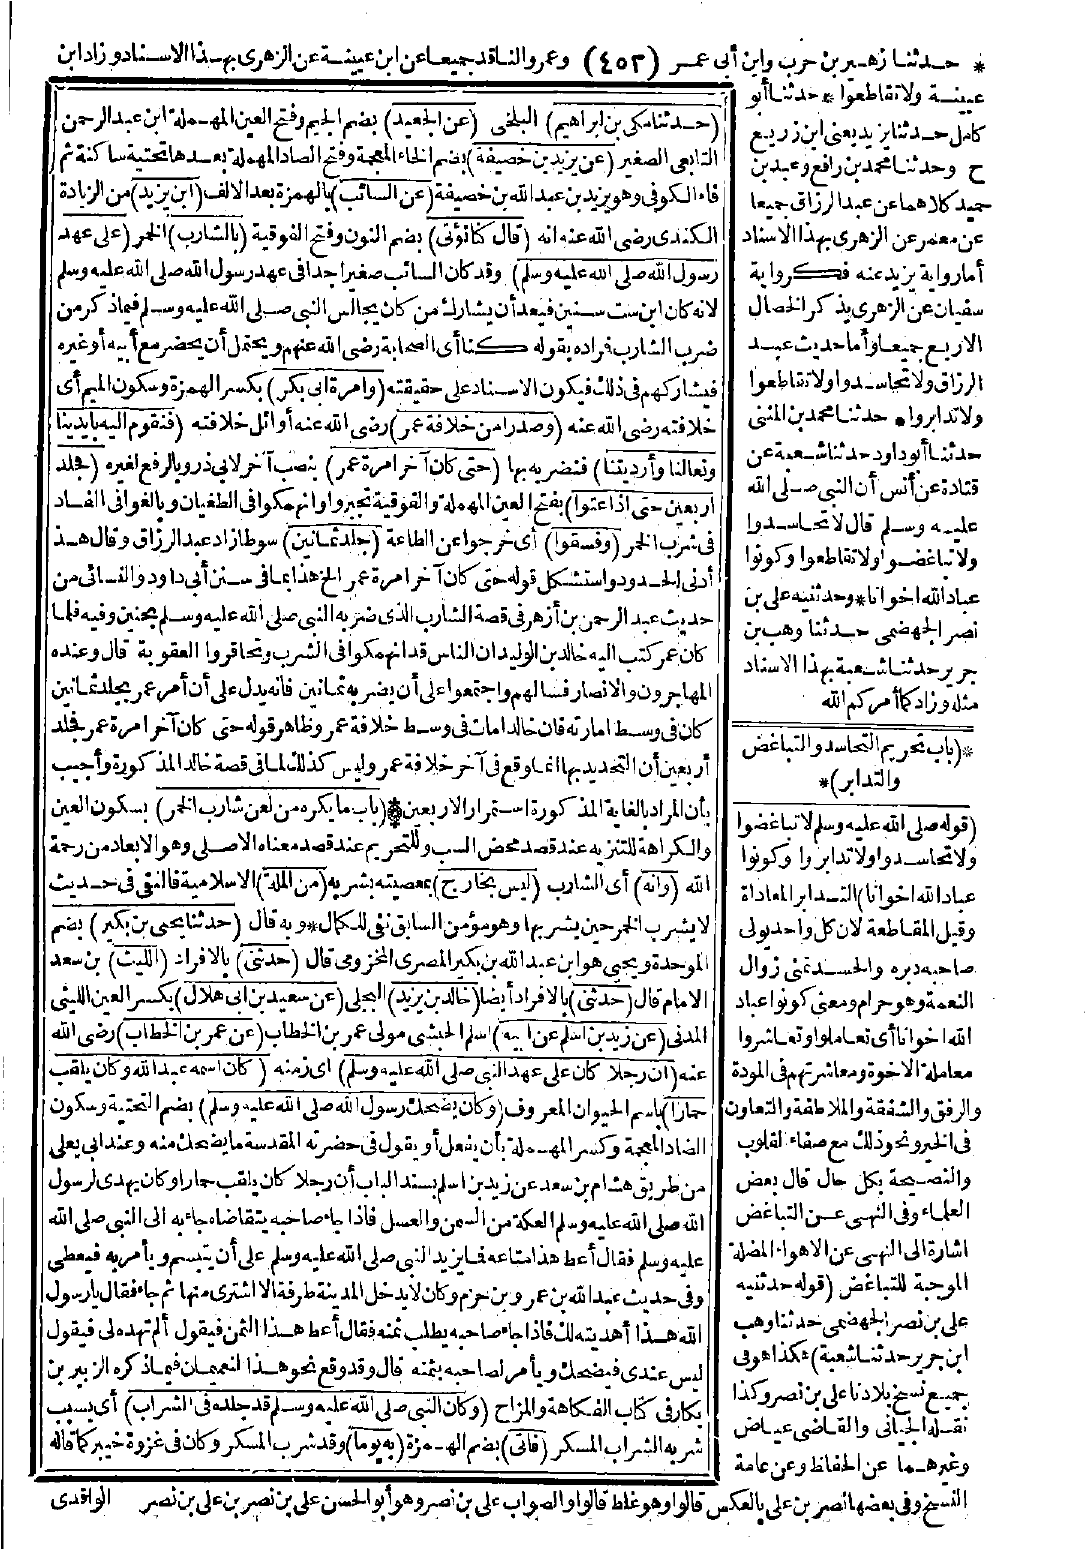 * حدثنا زهير بن حرب وابن أبى عمر (٤٥٢) وعمرو الناقد جميعا عن ابن عيينة عن الزهرى بهذا الاسناد وزاد ابن
عيينة ولا تقاطعوا * حدثنا أبو
كامل حدثنا يزيد يعنى ابن زريع
ح وحدثنا محمد بن رافع وعبد بن
حميد كلاهما عن عبد الرزاق جميعا
عن معمر عن الزهرى بهذا الاسناد
أما رواية يزيد عنه فكرواية
سفيان عن الزهرى يذكر الخصال
الاربع جميعا وأما حديث عبد
الرزاق ولا تحاسدوا ولا تقاطعوا
ولا تدابروا * حدثنا محمد بن المثنى
حدثنا أبو داود حدثنا شعبة عن
قتادة عن أنس أن النبى صلى الله
عليه وسلم قال لا تحاسدوا
ولا تباغضوا ولا تقاطعوا وكونوا
عباد الله اخوانا * وحدثنيه على بن
نصر الجهضمى حدثنا وهب بن
جرير حدثنا شعبة بهذا الاسناد
مثله وزاد كما أمركم الله
*(باب تحريم التحاسد والتباغض
والتدابر)*
(قوله صلى الله عليه وسلم لا تباغضوا
ولا تحاسدوا ولا تدابروا وكونوا
عباد الله اخوانا) التدابر المعاداة
وقيل المقاطعة لان كل واحد يولى
صاحبه دبره والحسد تمنى زوال
النعمة وهو حرام ومعنى كونوا عباد
الله اخوانا أى تعاملوا وتعاشروا
معاملة الاخوة ومعاشرتهم فى المودة
والرفق والشفقة والملاطفة والتعاون
فى الخير ونحو ذلك مع صفاء القلوب
والنصيحة بكل حال قال بعض
العلماء وفى النهى عن التباغض
اشارة الى النهى عن الاهواء المضلة
الموجبة للتباغض (قوله حدثنيه
على بن نصر الجهضمى حدثنا وهب
ابن جرير حدثنا شعبة) هكذا هو فى
جميع نسخ بلادنا على بن نصر وكذا
نقله الجيانى والقاضى عياض
وغيرهما عن الحفاظ وعن عامة
النسخ وفى بعضها نصر بن على بالعكس قالوا وهو غلط قالوا والصواب على بن نصر وهو أبو الحسن على بن نصر بن على بن نصر
(حدثنا مكى بن ابراهيم) البلخى (عن الجعيد) بضم الجيم وفتح العين المهملة ابن عبد الرحمن
التابعى الصغير (عن يزيد بن خصيفة) بضم الخاء المعجمة وفتح الصاد المهملة بعدها تحتية ساكنة ثم
فاء الكوفى وهو يزيد بن عبد الله بن خصيفة (عن السائب) بالهمزة بعد الالف (ابن يزيد) من الزيادة
الكندى رضى الله عنه انه (قال كنا نؤتى) بضم النون وفتح الفوقية (بالشارب) الخمر (على عهد
رسول الله صلى الله عليه وسلم) وقد كان السائب صغيرا جدا فى عهد رسول الله صلى الله عليه وسلم
لانه كان ابن ست سنين فيبعد أن يشارك من كان يجالس النبى صلى الله عليه وسلم فيما ذكر من
ضرب الشارب فراده بقوله كنا أى الصحابة رضى الله عنهم ويحتمل أن يحضر مع أبيه أو غيره
فيشاركهم فى ذلك فيكون الاسناد على حقيقته (وامرة ابى بكر) بكسر الهمزة وسكون الميم أى
خلافته رضى الله عنه (وصدرا من خلافة عمر) رضى الله عنه أوائل خلافته (فنقوم اليه بايدينا
ونعالنا وأرديتنا) فنضربه بها (حتى كان آخر امرة عمر) بنصب آخر لابى ذر وبالرفع لغيره (فجلد
اربعين حتى اذا عتوا) بفتح العين المهملة والفوقية تجبروا وانهمكوا فى الطغيان وبالغوا فى الفساد
فى شرب الخمر (وفسقوا) أى خرجوا عن الطاعة (جلد ثمانين) سوطا زاد عبد الرزاق وقال هذا
أدنى الحدود واستشكل قوله حتى كان آخر امرة عمر الخ هذا بما فى سنن أبى داود والنسائى من
حديث عبد الرحمن بن أزهر فى قصة الشارب الذى ضربه النبى صلى الله عليه وسلم بحنين وفيه فلما
كان عمر كتب اليه خالد بن الوليد ان الناس قد انهمكوا فى الشرب وتحاقروا العقوبة قال وعنده
المهاجرون والانصار فسالهم واجتمعوا على أن يضربه ثمانين فانه يدل على أن أمر عمر بجلد ثمانين
كان فى وسط امارته فان خالدا مات فى وسط خلافة عمر وظاهر قوله حتى كان آخر امرة عمر فجلد
أربعين أن التحديد بها انما وقع فى آخر خلافة عمر وليس كذلك لما فى قصة خالد المذكورة وأجيب
بأن المراد بالغاية المذكورة استمرار الاربعين *(باب ما يكره من لعن شارب الخمر) بسكون العين
والكراهة للتنزيه عند قصد محض السب وللتحريم عند قصد معناه الاصلى وهو الابعاد من رحمة
الله (وانه) أى الشارب (ليس بخارج) بمعصيته بشربه (من الملة) الاسلامية فالنفى فى حديث
لا يشرب الخمر حين يشربها وهو مؤمن السابق نفى للكمال * وبه قال (حدثنا يحيى بن بكير) بضم
الموحدة ويحيى هو ابن عبد الله بن بكير المصرى المخزومى قال (حدثنى) بالافراد (الليث) بن سعد
الامام قال (حدثنى) بالافراد أيضا (خالد بن يزيد) البجلى (عن سعيد بن ابى هلال) بكسر العين الليثى
المدنى (عن زيد بن اسلم عن ابيه) اسلم الحبشى مولى عمر بن الخطاب (عن عمر بن الخطاب) رضى الله
عنه (ان رجلا كان على عهد النبى صلى الله عليه وسلم) اى زمنه (كان اسمه عبد الله وكان يلقب
حمارا) باسم الحيوان المعروف (وكان يضحك رسول الله صلى الله عليه وسلم) بضم التحتية وسكون
الضاد المعجمة وكسر المهملة بأن يفعل أو يقول فى حضرته المقدسة ما يضحك منه وعند ابى يعلى
من طريق هشام بن سعد عن زيد بن اسلم بسند الباب أن رجلا كان يلقب حمارا وكان يهدى لرسول
الله صلى الله عليه وسلم العكة من السمن والعسل فاذا جاء صاحبه يتقاضاه جاء به الى النبى صلى الله
عليه وسلم فقال أعط هذا متاعه فما يزيد النبى صلى الله عليه وسلم على أن يتبسم ويأمر به فيعطى
وفى حديث عبد الله بن عمرو بن حزم وكان لا يدخل المدينة طرفة الا اشترى منها ثم جاء فقال يا رسول
الله هذا أهديته لك فاذا جاء صاحبه يطلب ثمنه فقال أعط هذا الثمن فيقول ألم تهده لى فيقول
ليس عندى فيضحك ويأمر لصاحبه بثمنه قال وقد وقع نحو هذا النعيمان فيما ذكره الزبير بن
بكار فى كتاب الفكاهة والمزاح (وكان النبى صلى الله عليه وسلم قد جلده فى الشراب) أى بسبب
شربه الشراب المسكر (فاتى) بضم الهمزة (به يوما) وقد شرب المسكر وكان فى غزوة خيبر كما قاله
الواقدى